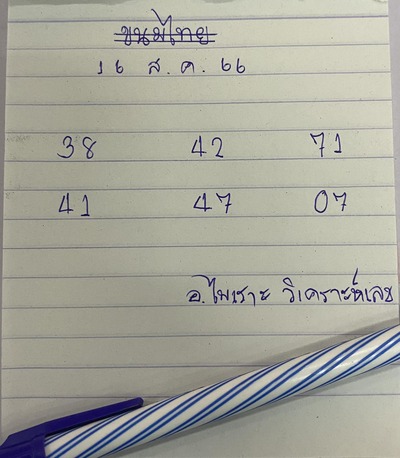 ขนมไทย
16 ส.ค. 66
38 42 71
41 47 07
อ.ไพเราะ วิเคราะห์เลข